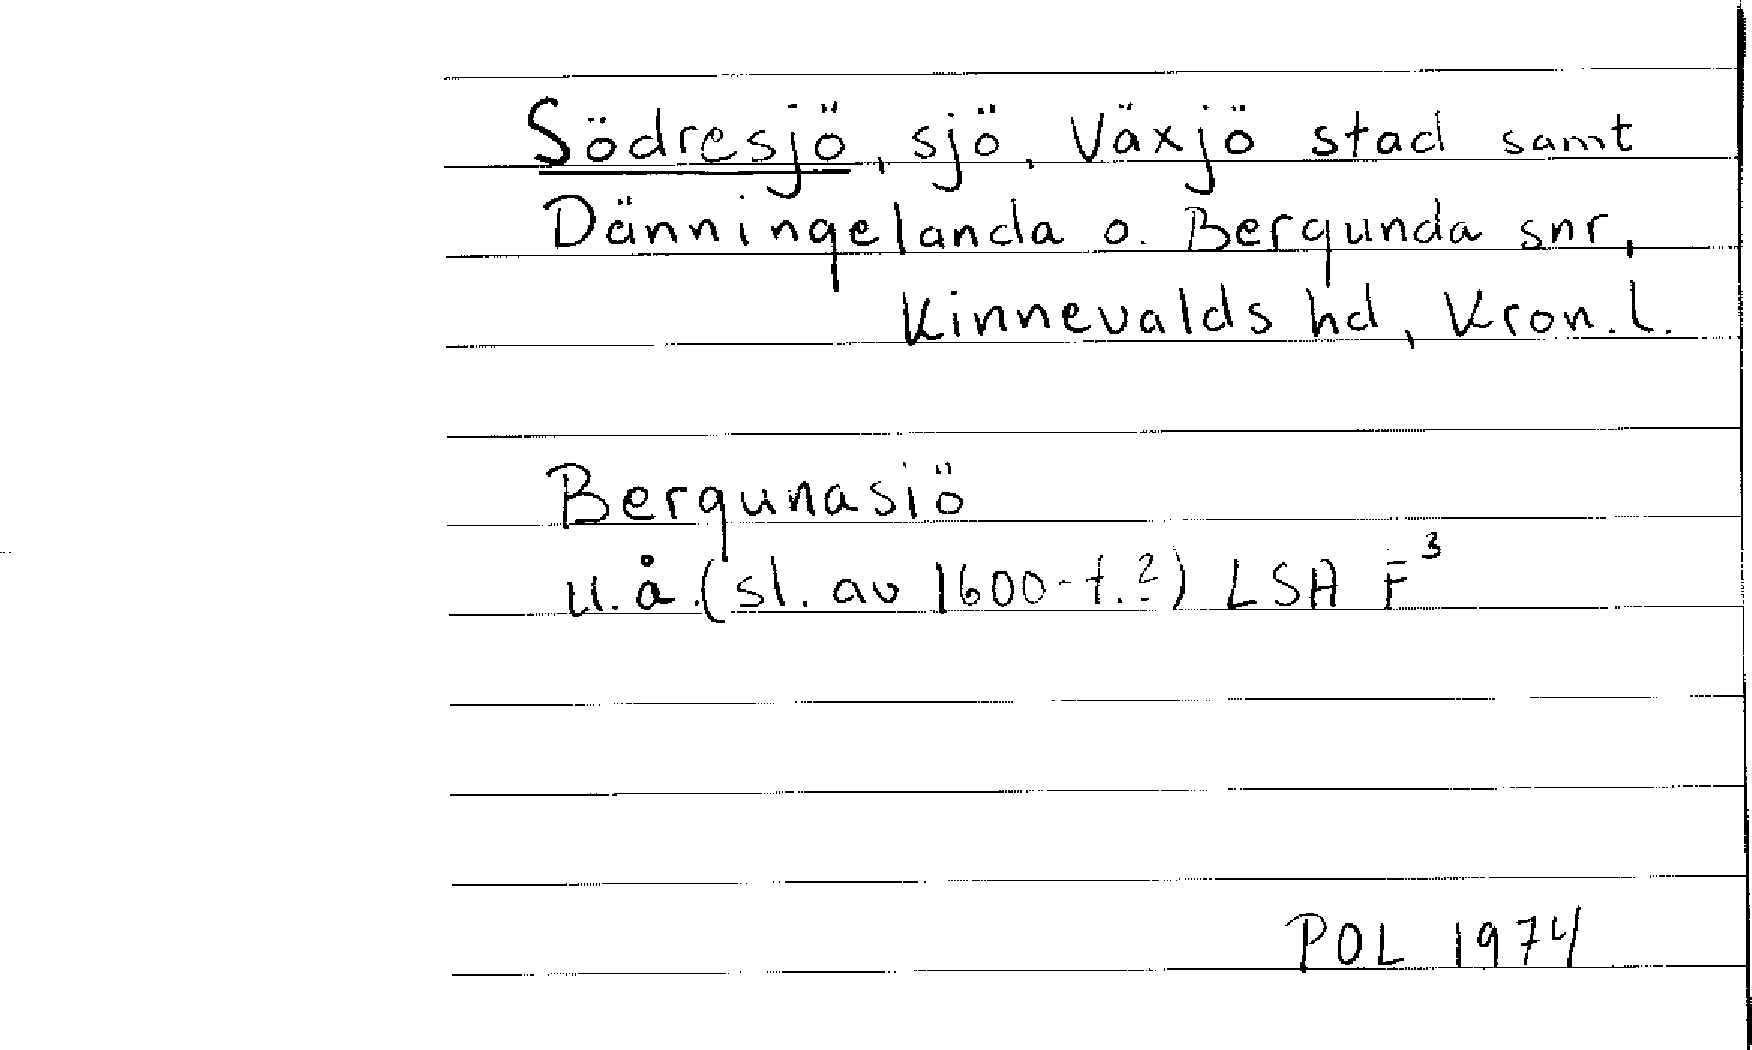 Södresjö, sjö, Växjö stad samt
Dänningelanda o. Bergunda snr,
Kinnevalds hd, Kron. l.
Bergunasiö
u.å. (sl. av 1600-t.?) LSA F³
POL 1974